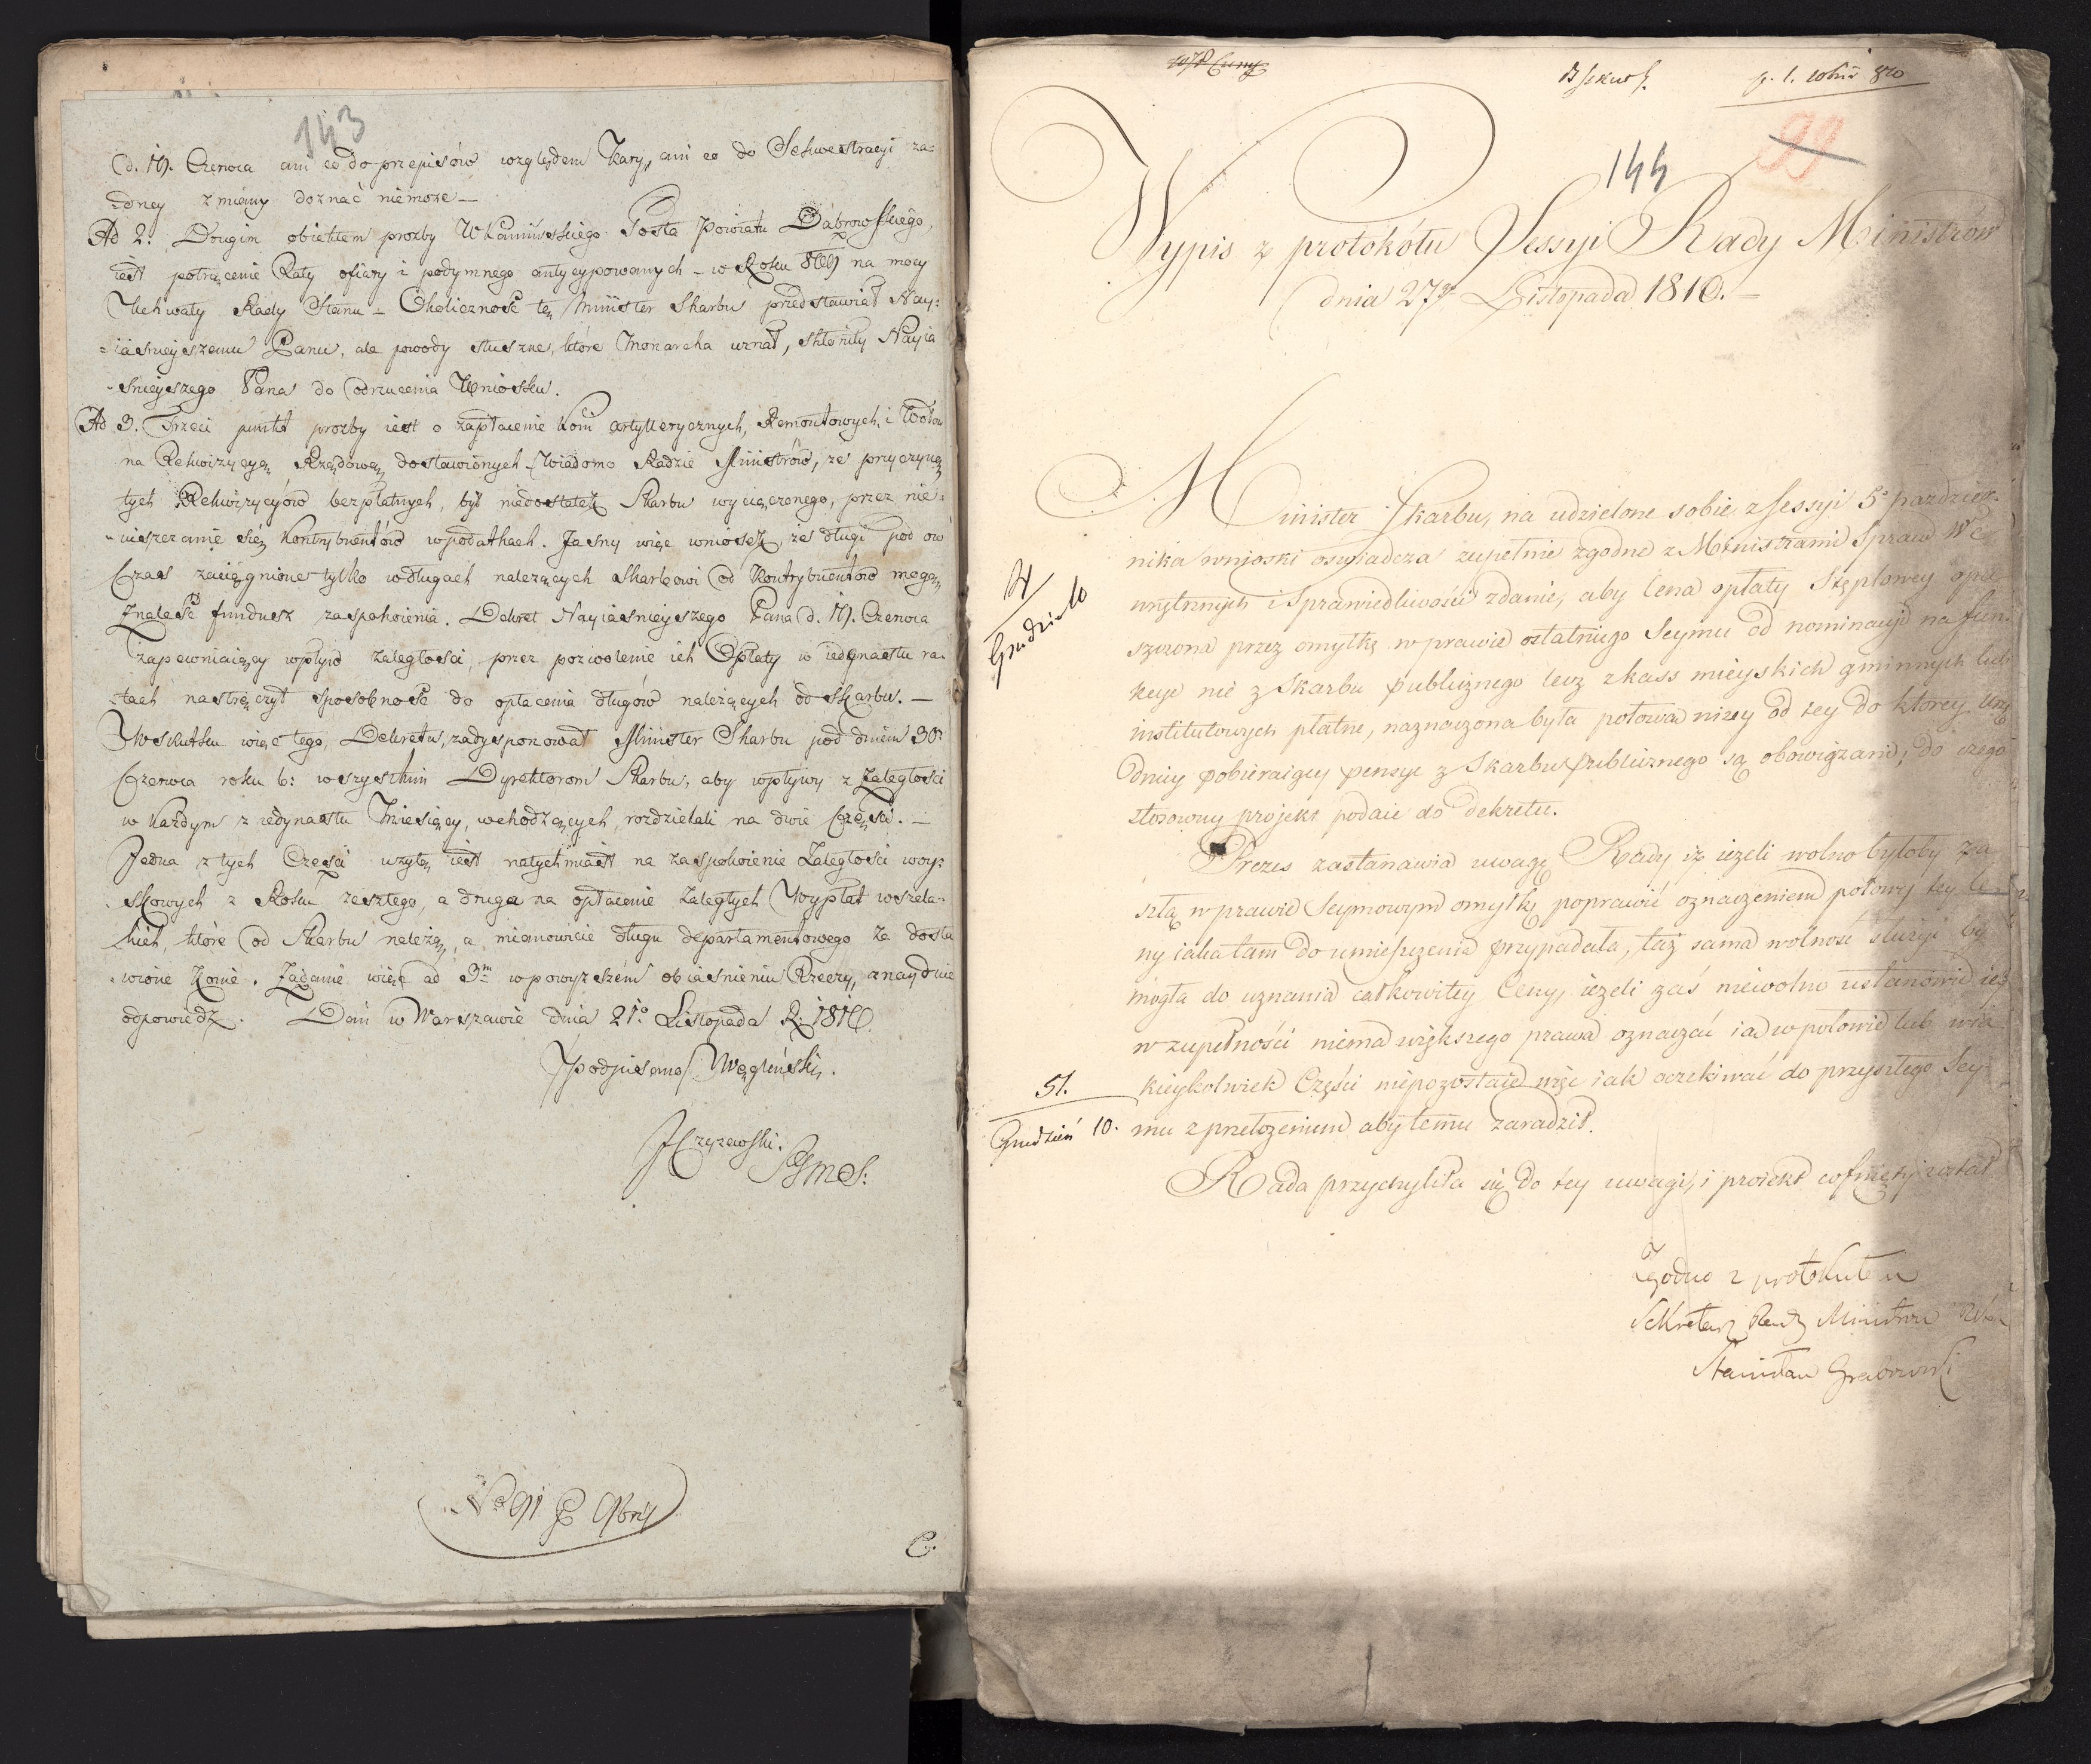 143
d. 19. Czerwca ani co do przepisów względem Kary, ani co do Sekwestracyi ża=
=dney zmiany doznać niemoże —
Ad 2. Drugim obiektem prozby W Kamińskiego Posła Powiatu Dąbrowskiego,
iest potrącenie Raty ofiary i podymnego antycypowanych – w Roku 1809 na mocy
Uchwały Rady Stanu – Okoliczność tę Minister Skarbu przedstawiał Nay=
=iaśnieyszemu Panu, ale powody słuszne, które Monarcha uznał, skłoniły Nayia
śnieyszego Pana do odrzucenia Wniosku.
Ad 3. Trzeci punkt prozby iest o zapłacenie koni artyllerycznych, Remontowych, i Wołów
na Rekwizycyą Rządową dostawionych – Wiadomo Radzie Ministrów, że przyczyną
tych Rekwizycyów bezpłatnych, był niedostatek Skarbu wycieńczonego, przez nie=
=uiszczanie się kontrybuentów w podatkach. Jasny więc wniosek, że długi pod ów
Czas zaciągnione tylko w długach należących Skarbowi od Kontrybuentów mogą
znaleść fundusz zaspokoienia. Dekret Nayiaśnieyszego Pana d. 19. Czerwca
zapewniaiący wpływ zaległości, przez pozwolenie ich Opłaty w iedynastu ra=
=tach nastręczył sposobność do opłacenia długów należących od Skarbu. —
W skutku więc tego Dekretu, zadysponował Minister Skarbu pod dniem 30
Czerwca roku b: wszystkim Dyrektorom Skarbu, aby wpływy z Zaległości
w każdym z iedynastu Miesięcy, wchodzących, rozdzielali na dwie Części. —
Jedna z tych Części użytą iest natychmiast na zaspokoienie Zaległości woy=
skowych z Roku zeszłego, a druga na opłacenie zaległych Wypłat wszela=
kich, które od Skarbu należą, a mianowicie długu departamentowego za dosta
wione Konie. Żądanie więc ad 3m w powyższém obiaśnieniu Rzeczy, znayduie
odpowiedź. Dan w Warszawie dnia 21o Listopada R. 1810.
/podpisano/ Węgleński.
Nro 911 9bris
C.
B Skarb.
144
99
Wypis z protokółu Sessyi Rady Ministrów
dnia 27go Listopada 1810. —
Minister Skarbu, na udzielone sobie z Sessyi 5o paździer=
nika wnioski oswiadcza zupełnie zgodne z Ministrami Spraw We
wnętrznych i Sprawiedliwości zdanie, aby Cena opłaty Stęplowey opu
szczona przez omyłkę w prawie ostatniego Seymu od nominacyi na fun=
kcye nie z Skarbu publicznego lecz z kass mieyskich gminnych lub
institutowych płatne, naznaczona była połowa niżey od tey do którey urzę
dnicy pobieraiący pensye z Skarbu publicznego są obowiązani, do czego
stosowny projekt podaie do Dekretu.
Prezes zastanawia uwagę Rady iż ieżeli wolno byłoby za
szłą w prawie Seymowym omyłkę poprawić oznaczeniem połowy tey Ce=
ny iaka tam do umieszczenia przypadała, taż sama wolność służyć by
mogła do uznania całkowitey Ceny, ieżeli zaś niewolno ustanowić iey
w zupełności niema większego prawa oznaczać ią w połowie lub w ia
kieykolwiek Części niepozostaie więc iak oczekiwać do przyszłego Sey=
mu z przełożeniem aby temu zaradził.
Rada przychyliła się do tey uwagi, i projekt cofnięty został
Grudnia 10
51.
Grudzień 10.
Zgodno z protokułem
Sekretarz Rady Ministrów
Stanisław Grabowski